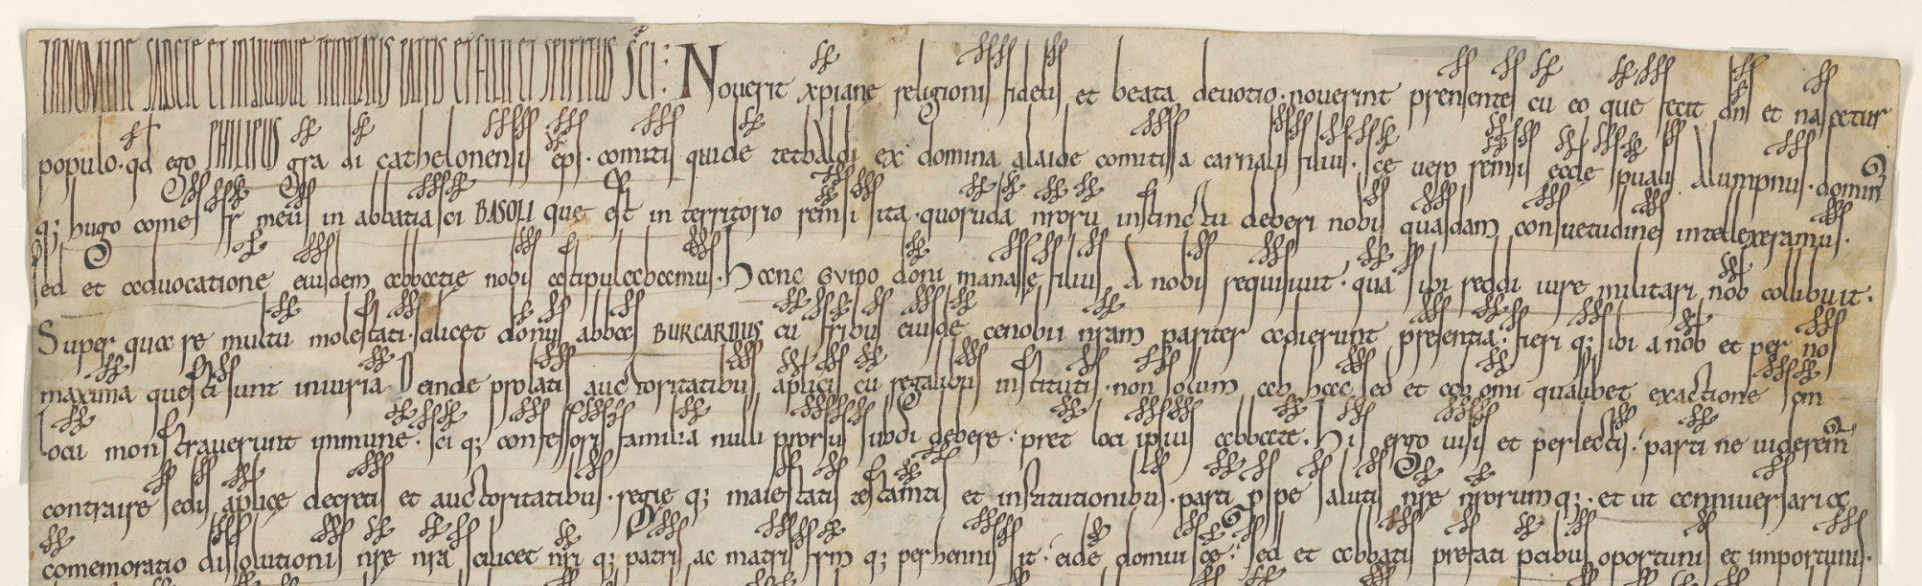 IN NOMINE SANCTE ET INDIVIDUE TRINITATIS PATRIS ET FILII ET SPIRITUS S̄CI: Nouerit xp̄iane religionis fidelis et beata deuotio. nouerint presentes cū eo que fecit dn̄s et nascetur
populo. qd ego PHILIPUS grā dī cathelonensis ep̄s. comitis quidē tetbaldi ex domina alaide comitissa carnalis filius. scē uero remsis ecclē sp̄ualis alumpnus. domin
q; hugo comes fr̄ meus in abbatia scī BASOLI que est in territorio remsi sita. quorūdā nrōrū instinctu deberi nobis quasdam consuetudines intellexeramus.
sed et aduocatione eiusdem abbatie nobis astipulabamus. Hanc GVIDO doni manasse filius A nobis requisiuit. quā sibi reddi iure militari nob collibuit.
Super qua re multū molestati. scilicet donus abbas BURCARDUS cū frībus eiusdē cenobii nram pariter adierunt presentiā. fieri q; sibi a nob et per nos
maxima questi sunt iniuriā Deinde prolatis auctoritatibus aplicis cū regalibus institutis. non solum ab hac sed et ab omi qualibet exactione om
locū monstrauerunt immunē. scī q; confessoris familiā nulli prorsus subdi debere. pret loci ipsius abbate. His ergo uisis et perlectis. parti ne uideremˉ
contraire sedis aplicę decretis et auctoritatibus. regie q; maiestatis testamtis et institutionibus. parti p spe salutis nrē nrōrum q;. et ut anniuersaria
comemoratio dissolutionis nrē nrā scilicet nrī q; patris ac matris frm q; perhennis sit. eidē domui scē. sed et abbatis prefati pcibus oportunis et importunis.